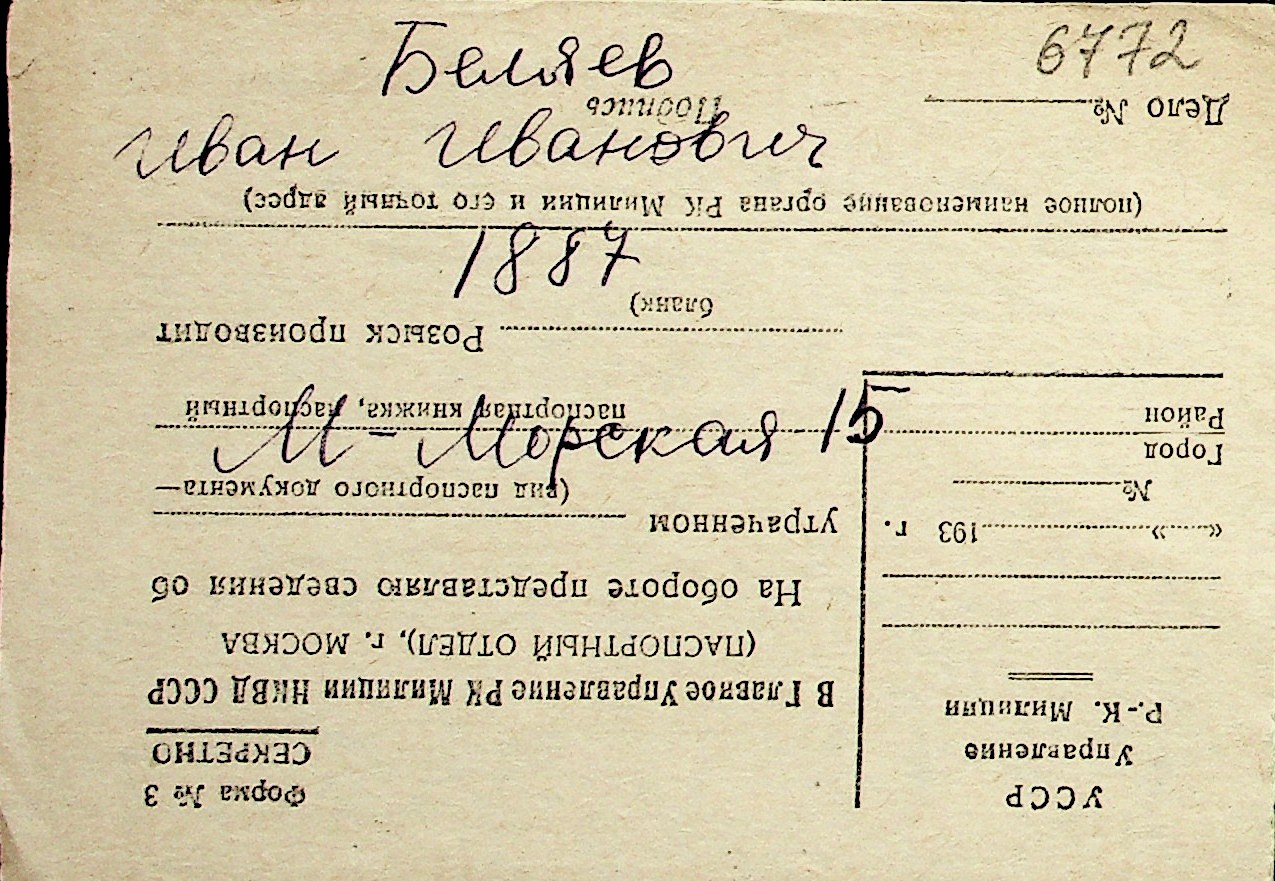 Беляев
6772
Иван Иванович
1887
М-Морская 15
УССР
Управление
Р.-К. Милиции
«......»..................193 г.
№
Город
Район
Форма № 3
СЕКРЕТНО
В Главное Управление РК Милиции НКВД СССР
(ПАСПОРТНЫЙ ОТДЕЛ), г. МОСКВА
На обороте представляю сведения об
утраченном
(вид паспортного документа—
паспортная книжка, паспортный
бланк)
Розыск производит
(полное наименование органа РК Милиции и его точный адрес)
Дело №
Подпись